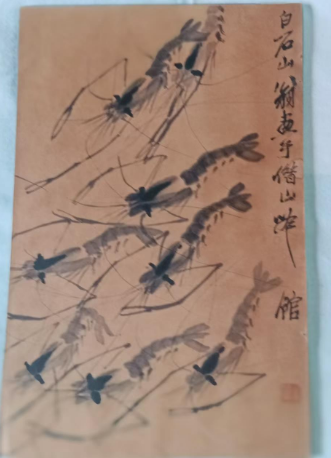 白石山翁畫于借山吟館